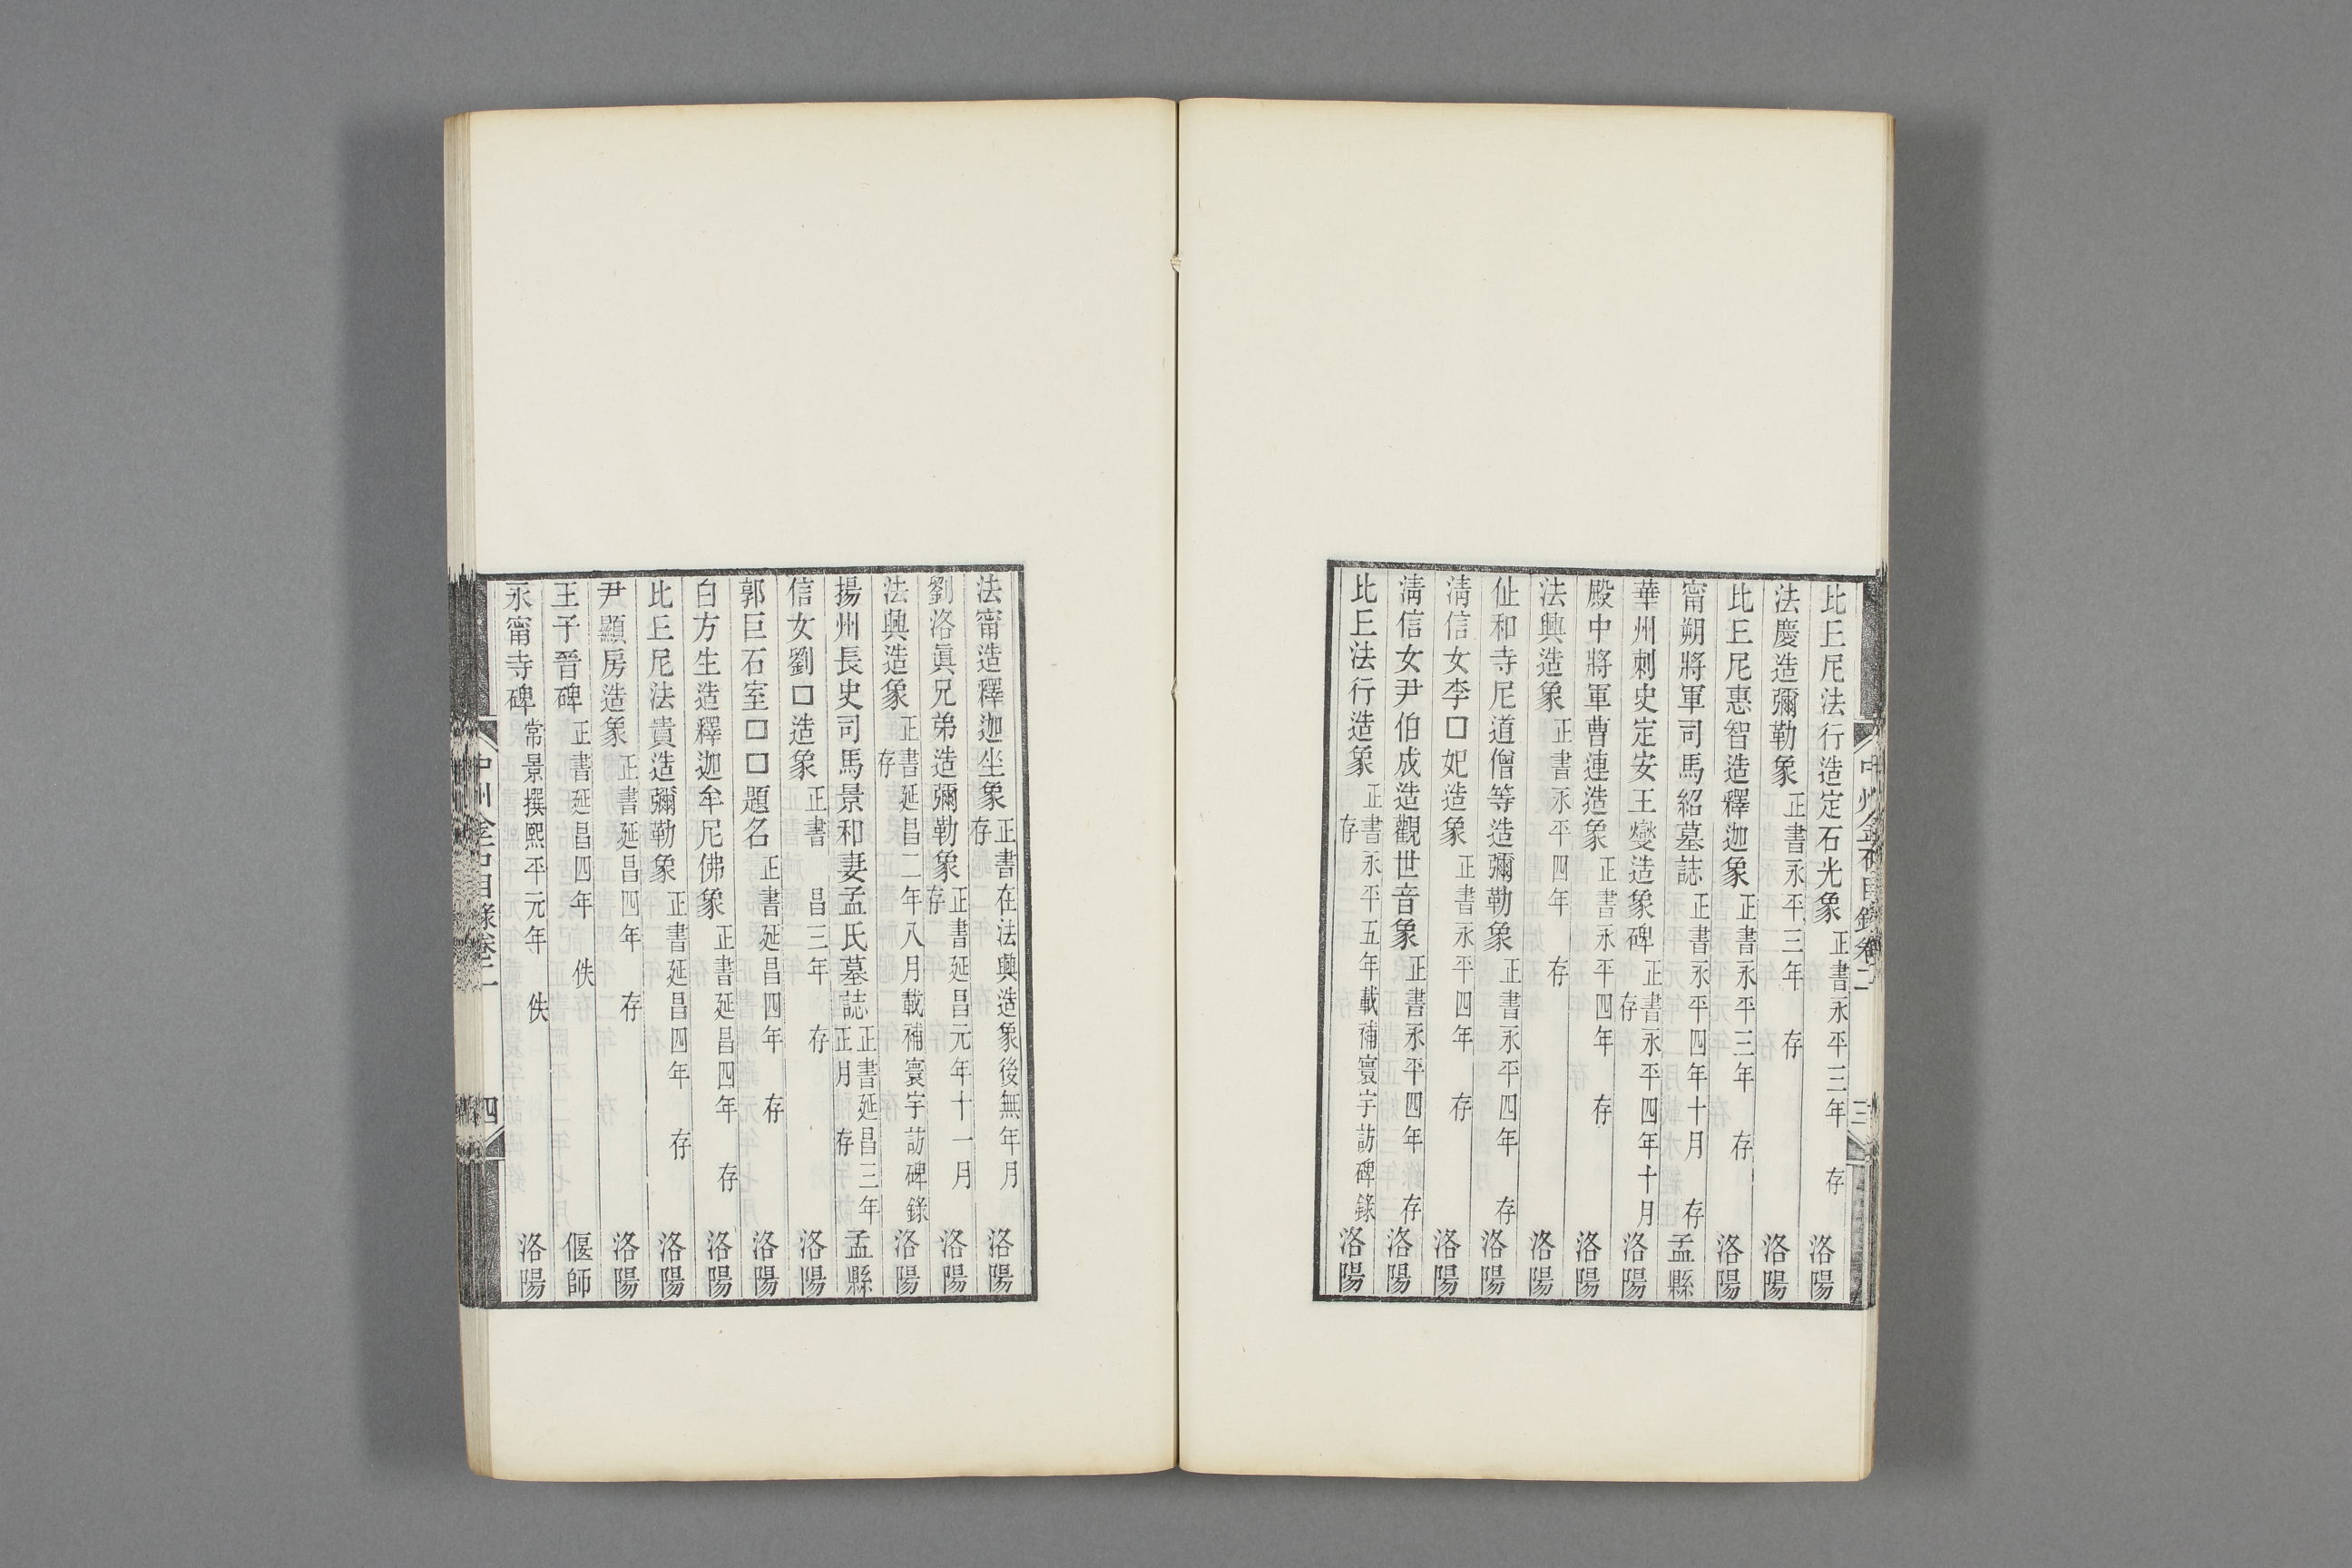 中州金石目錄卷二 三
比𠀉尼法行造定石光象 正書永平三年 存 洛陽
法慶造彌勒象 正書永平三年 存 洛陽
比𠀉尼惠智造釋迦象 正書永平三年 存 洛陽
甯朔將軍司馬紹墓誌 正書永平四年十月 存 孟縣
華州刺史定安王燮造象碑 正書永平四年十月 存 洛陽
殿中將軍曹連造象 正書永平四年 存 洛陽
法興造象 正書永平四年 存 洛陽
仙和寺尼道僧等造彌勒象 正書永平四年 存 洛陽
淸信女李口妃造象 正書永平四年 存 洛陽
淸信女尹伯成造觀世音象 正書永平四年 存 洛陽
比𠀉法行造象 正書永平五年載補寰宇訪碑錄 存 洛陽
法甯造釋迦坐象 正書在法興造象後無年月 存 洛陽
劉洛眞兄弟造彌勒象 正書延昌元年十一月 存 洛陽
法興造象 正書延昌二年八月載補寰宇訪碑錄 存 洛陽
揚州長史司馬景和妻孟氏墓誌 正書延昌三年正月 存 孟縣
信女劉口造象 正書 昌三年 存 洛陽
郭巨石室口口題名 正書延昌四年 存 洛陽
白方生造釋迦牟尼佛象 正書延昌四年 存 洛陽
比𠀉尼法貴造彌勒象 正書延昌四年 存 洛陽
尹顯房造象 正書延昌四年 存 洛陽
王子晉碑 正書延昌四年 佚 偃師
永甯寺碑 常景撰熙平元年 佚 洛陽
中州金石目錄卷二 四